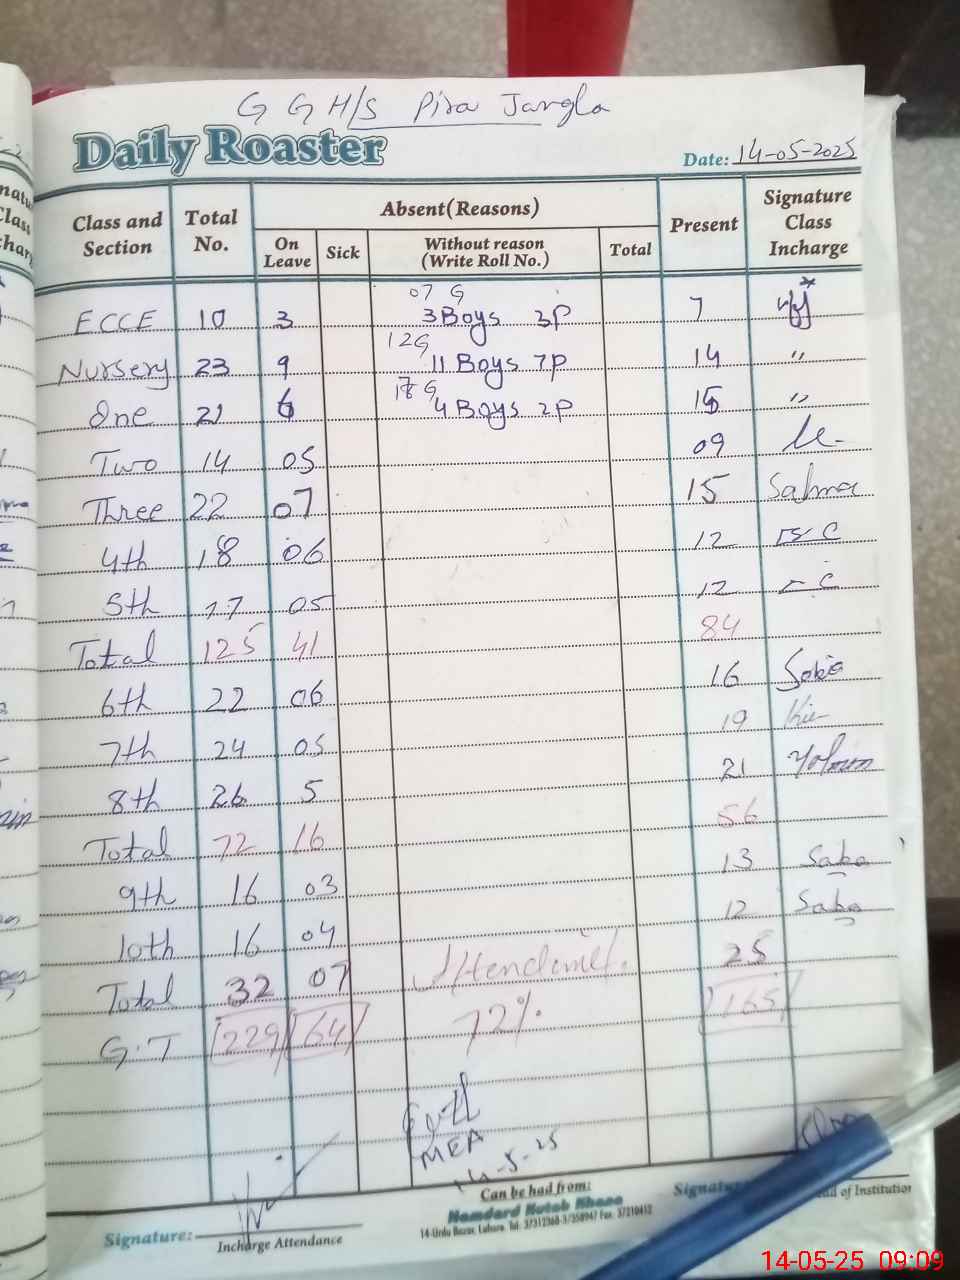 G G H/S Pira Jangla
Daily Roaster
Date: 14-05-2025
Class and Section Total No. Absent(Reasons) Present Signature Class Incharge
On Leave Sick Without reason (Write Roll No.) Total
07 G
ECCE 10 3 3 Boys 3P 7
12G
Nursery 23 9 11 Boys 7P 14 "
G
One 21 6 4 Boys 2P 15 "
Two 14 05 09
Three 22 07 15 Salma
4th 18 06 12
5th 17 05 12
Total 125 41 84
6th 22 06 16 Saba
7th 24 05 19
8th 26 5 21
Total 72 16 56
9th 16 03 13 Saba
10th 16 04 12 Saba
Total 32 07 25
G.T 229 64 165
72%
MEA
14-5-25
Can be had from:
Hamdard Kutab Khana
14-Urdu Bazar, Lahore. Tel: 37312368-3/358947 Fax: 37210412
Signature: Incharge Attendance
14-05-25 09:09